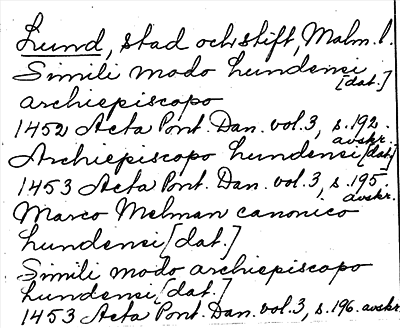 Lund, stad och stift, Malm. l.
Simili modo lundensi [dat.]
archiepiscopo
1452 Acta Pont. Dan. vol. 3, s. 192. avskr.
Archiepiscopo lundensi [dat.]
1453 Acta Pont. Dan. vol. 3, s. 195 avskr.
Marco Melman canonico
lundensi [dat.]
Simili modo archiepiscopo
lundensi [dat.]
1453 Acta Pont. Dan. vol. 3, s. 196. avskr.